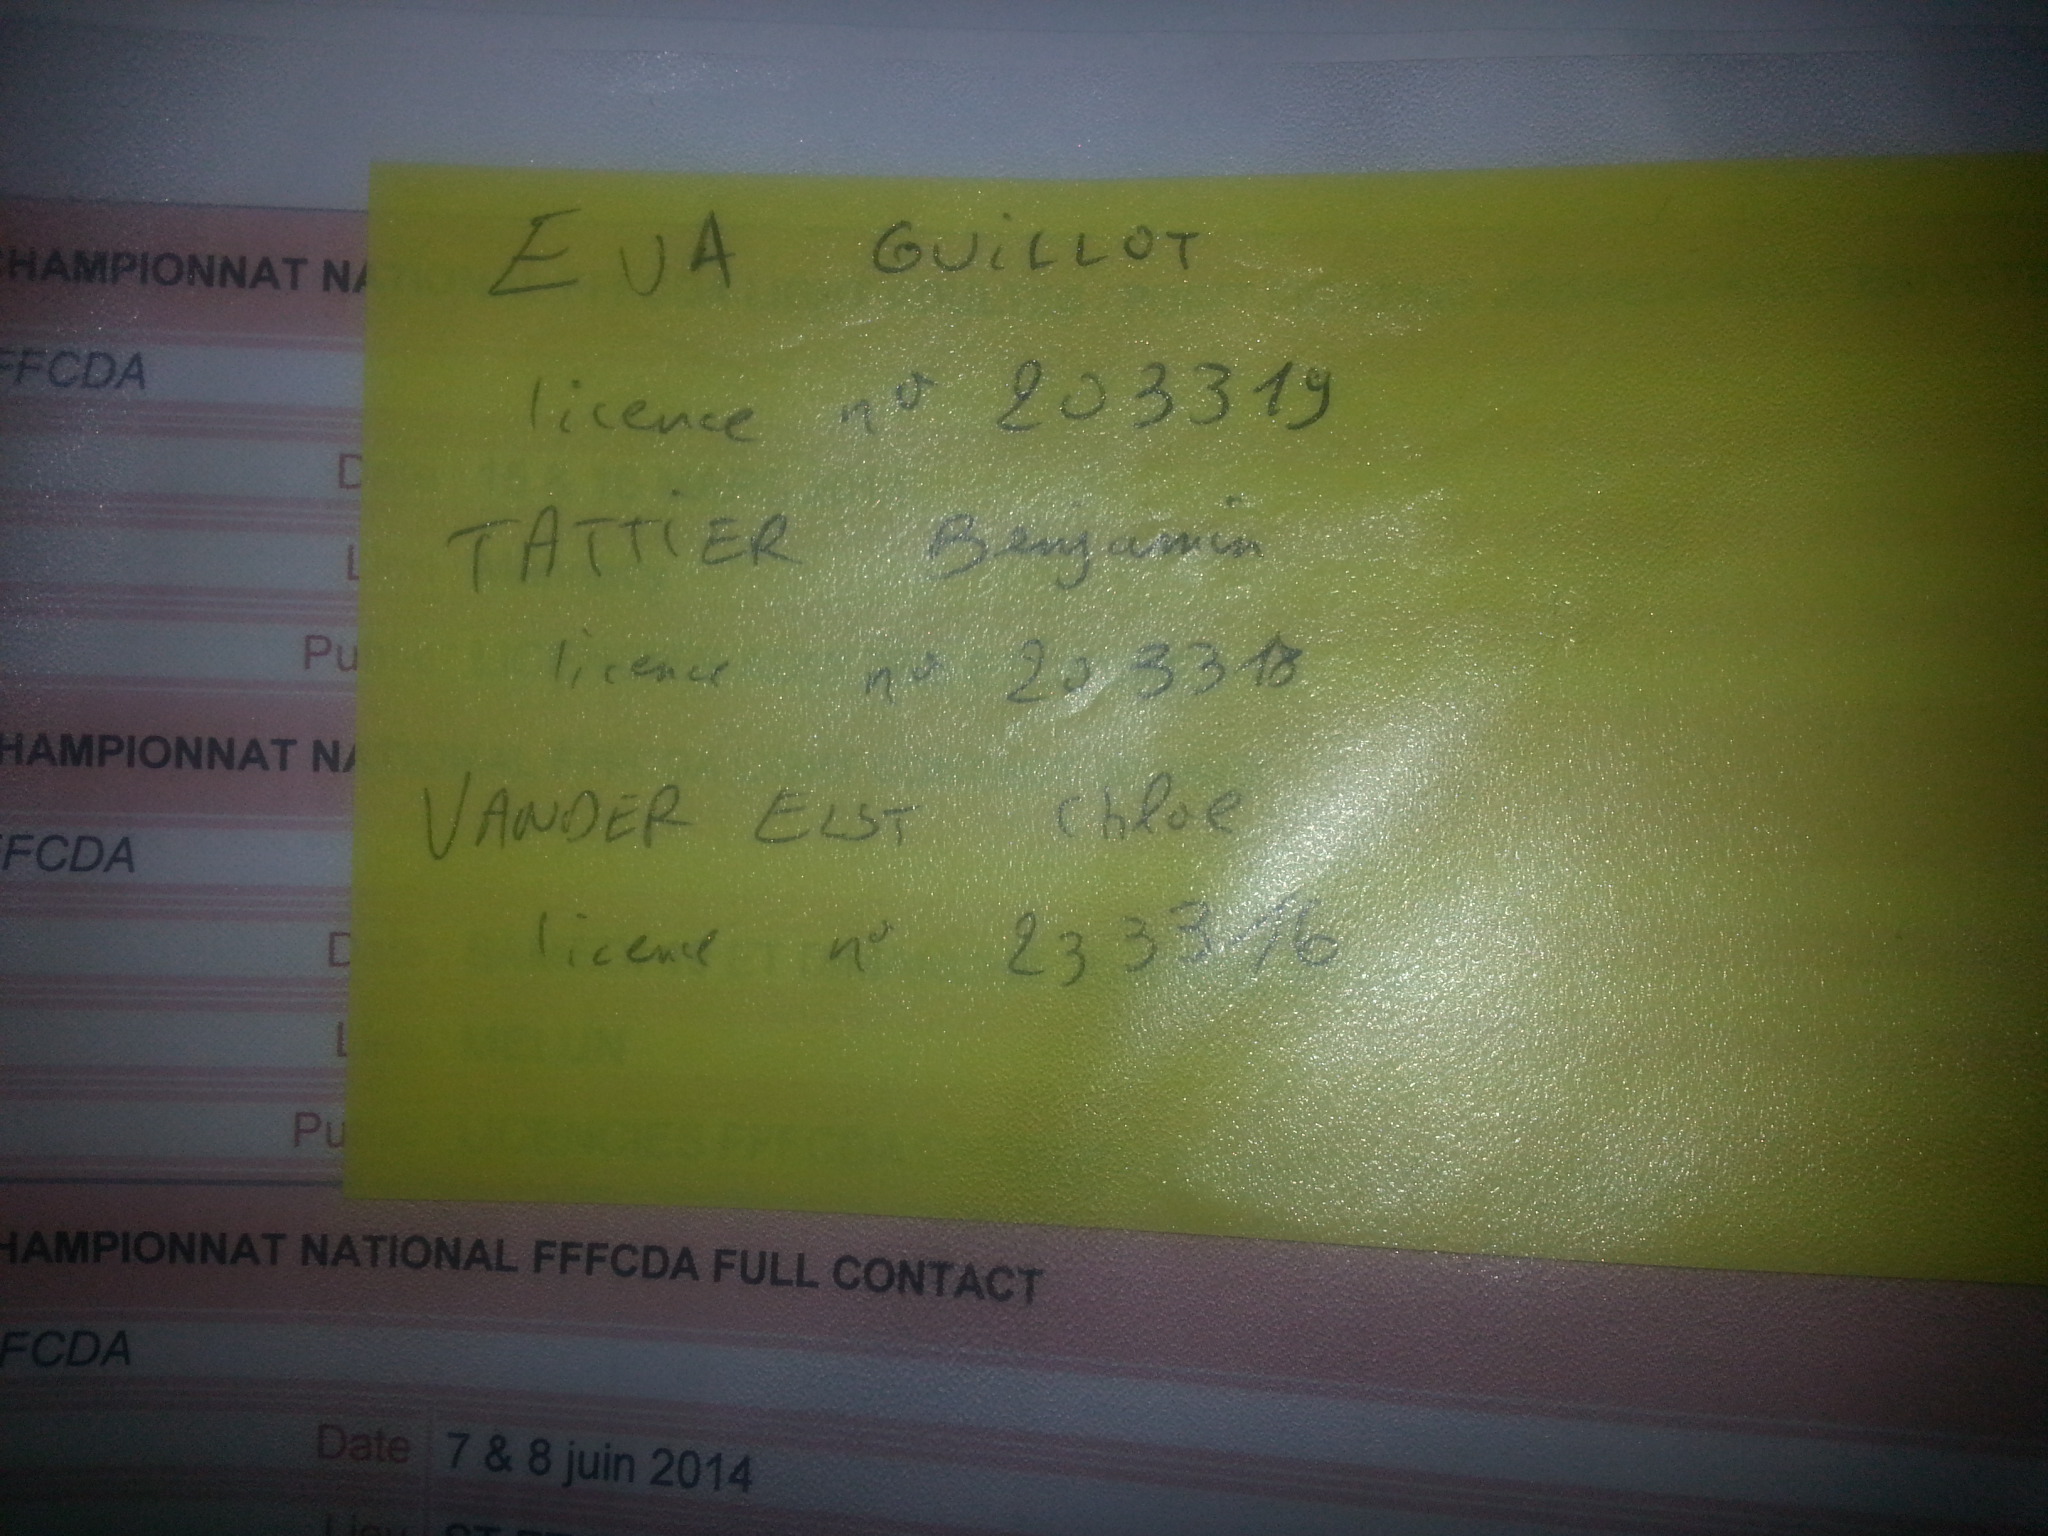 EVA GUILLOT
licence n° 203319
TATTIER Benjamin
licence n° 203318
VANDER ELST Chloe
licence n° 233316
CHAMPIONNAT NA
FFCDA
D
L
Pu
HAMPIONNAT NA
FFCDA
D
L
Pu
HAMPIONNAT NATIONAL FFFCDA FULL CONTACT
FCDA
Date 7 & 8 juin 2014
Lieu